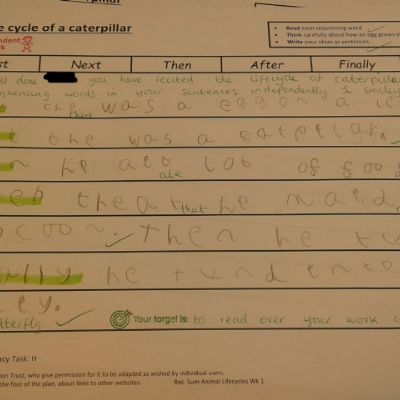 e cycle of a caterpillar
Read each sequencing word.
Think carefully about how an egg grows in
Write your ideas as sentences.
ndent
rk
st Next Then After Finally
ll done you have recited the lifecycle of caterpillar
quencing words in your sentences independently 1 smiley
the was a eggon a le
there
t the was a catepllar.
n he aet lot of foo
ate
ter thea he maed
that
coon. Then he tu
ally he turnd into
ley.
tterfly. Your target is: to read over your work
acy Task: H
ion Trust, who give permission for it to be adapted as wished by individual users.
the foot of the plan, about links to other websites. Rec Sum Animal Lifecycles Wk 1